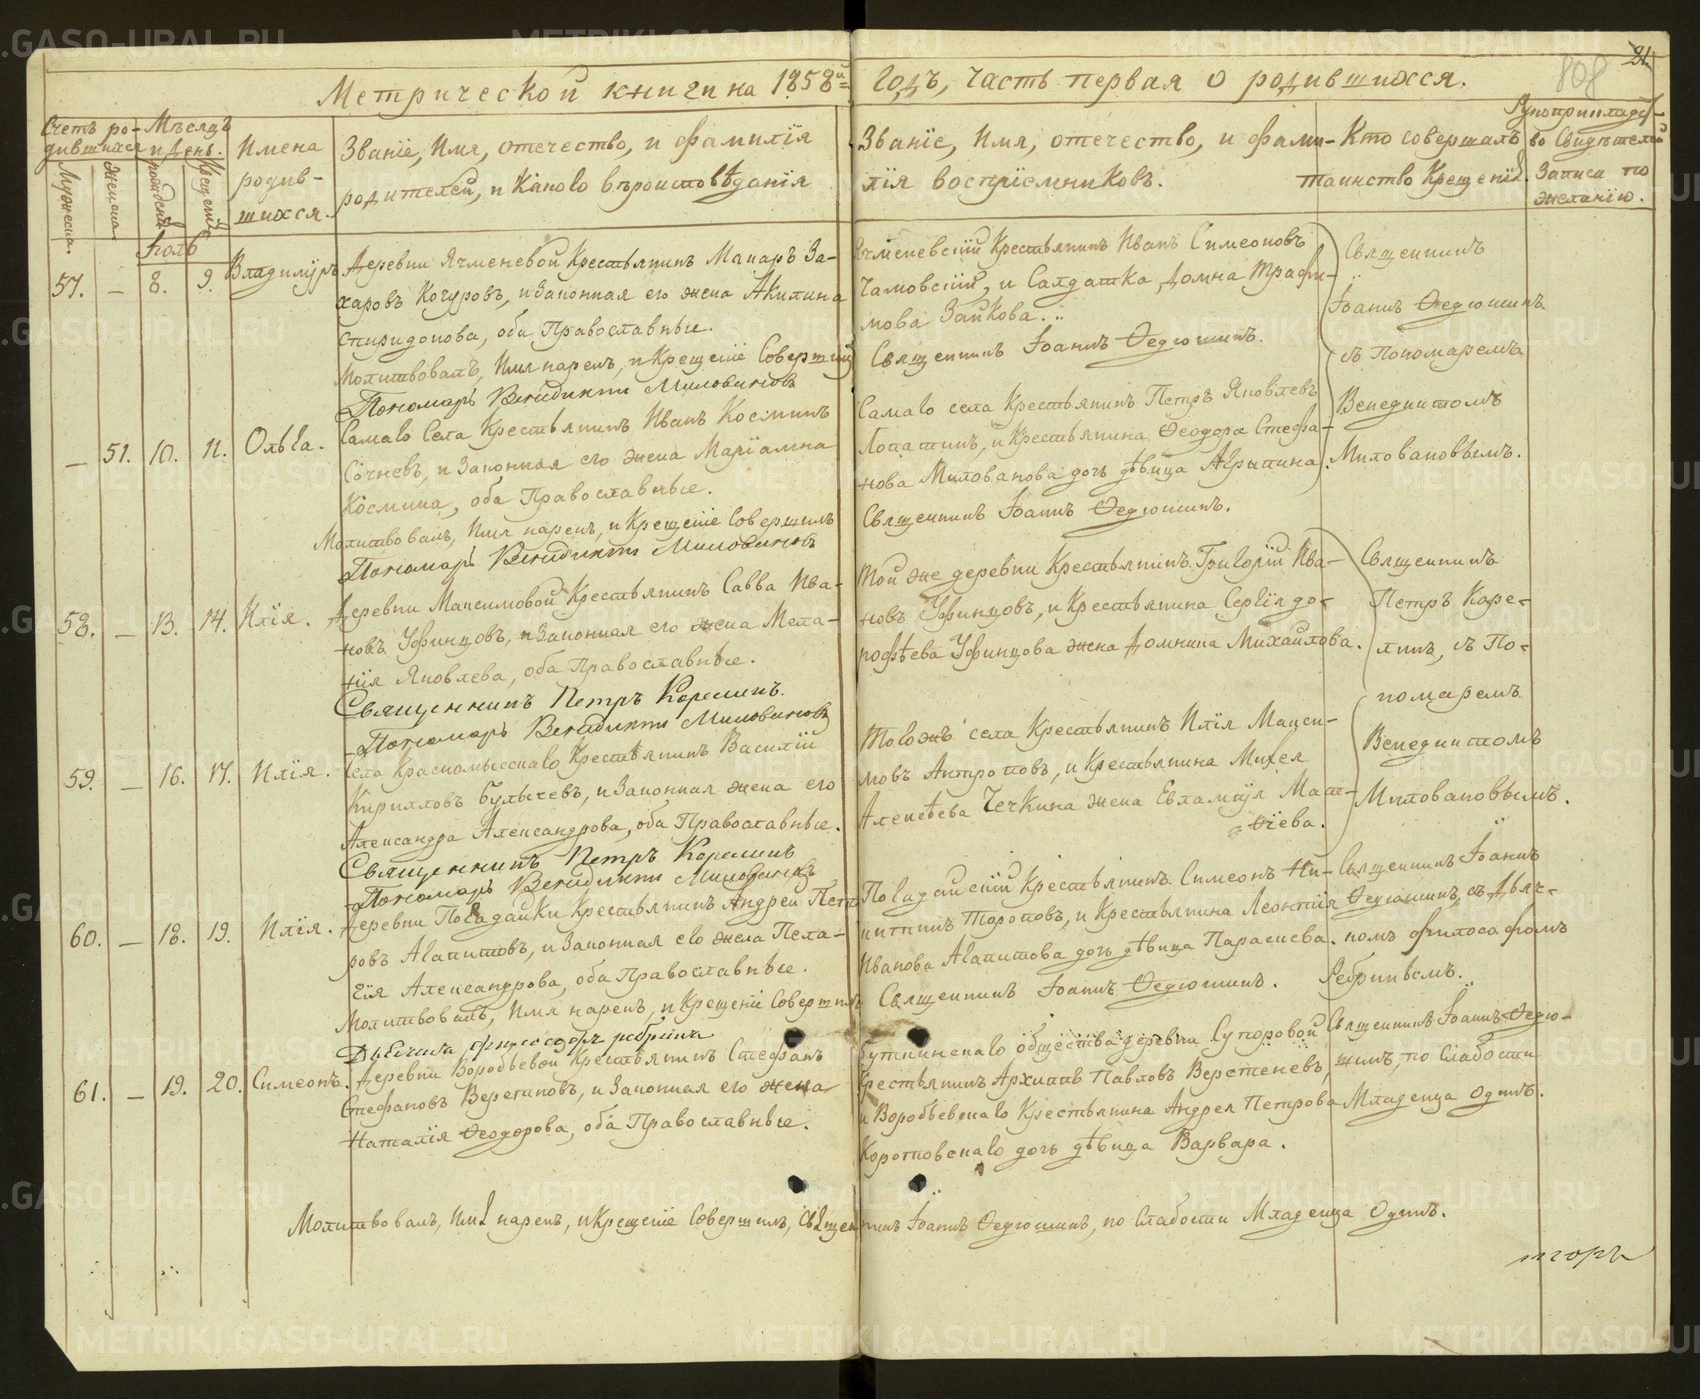 Метрической книги на 1858й годъ, часть первая о родившихся.
21
808
Счетъ родившихся
Мѣсяцъ и день.
Мужеска.
Женска.
рожденія
Крещенія
Имена родившихся.
Званіе, Имя, отечество, и фамилія
родителей, и Каково вѣроисповѣданія
Званіе, Имя, отечество, и фами-
лія воспріемниковъ.
Кто совершалъ
таинство Крещенія.
Рукоприкладство
Свидѣтелей
Записи по
желанію.
Іюль
57. — 8. 9. Владимiръ
Деревни Ячменевой Крестьянинъ Макаръ За-
харовъ Кочуровъ, и Законная его жена Акилина
Спиридонова, оба Православные.
Молитвовалъ, Имя нарекъ, и Крещеніе Совершилъ
Священникъ Іоаннъ Ѳедюшинъ.
Пономарь Венидиктъ Миловановъ
Ячменевскій Крестьянинъ Иванъ Симеоновъ
и Салдатка Домна Трафи-
мова Зайкова.
Священникъ
Іоаннъ Ѳедюшинъ
съ Пономаремъ
Венедиктомъ
Миловановымъ.
— 51. 10. 11. Ольга.
Самаго Села Крестьянинъ Иванъ Косминъ
Сочневъ, и Законная его жена Маріамна
Космина, оба Православные.
Молитвовалъ, Имя нарекъ, и Крещеніе Совершилъ
Священникъ Іоаннъ Ѳедюшинъ.
Пономарь Венидиктъ Миловановъ
Самаго села Крестьянинъ Петръ Яковлевъ
Лопатинъ, и Крестьянина Ѳеодора Стефа-
нова Милованова дочь дѣвица Агрипина.
58. — 13. 14. Илія.
Деревни Максимовой Крестьянинъ Савва Ива-
новъ Уфинцовъ, и Законная его жена Мела-
нія Яковлева, оба Православные.
Священникъ Петръ Корелинъ.
Пономарь Венидиктъ Миловановъ
Той же деревни Крестьянинъ Григорій Ива-
новъ Уфинцовъ, и Крестьянина Сергія до-
рофѣева Уфинцова жена Домника Михайлова.
Священникъ
Петръ Коре-
линъ, съ По-
номаремъ
Венедиктомъ
Миловановымъ.
59. — 16. 17. Илія.
Села Красномысскаго Крестьянинъ Василій
Кирилловъ Булычевъ, и Законная жена его
Александра Александрова, оба Православные.
Священникъ Петръ Корелинъ
Пономарь Венидиктъ Миловановъ
Тогожъ села Крестьянинъ Илія Макси-
мовъ Антроповъ, и Крестьянина Михея
Алексѣева Чечкина жена Евлампія Мат-
ѳіева.
60. — 18. 19. Илія.
Деревни Погадайки Крестьянинъ Андрей Пет-
ровъ Агапитовъ, и Законная его жена Пела-
гія Александрова, оба Православные.
Молитвовалъ, Имя нарекъ, и Крещеніе Совершилъ
Священникъ Іоаннъ Ѳедюшинъ.
Погадайскій Крестьянинъ Симеонъ Ни-
китинъ Тороповъ, и Крестьянина Леонтія
Иванова Агапитова дочь дѣвица Параскева.
Священникъ Іоаннъ
Ѳедюшинъ, съ Дьяч-
комъ Филосафомъ
Ребринымъ.
61. — 19. 20. Симеонъ.
Деревни Воробьевой Крестьянинъ Стефанъ
Стефановъ Веретновъ, и Законная его жена
Наталія Ѳеодорова, оба Православные.
общества деревни Супоровой
Крестьянинъ Архипъ Павловъ Верстеневъ,
и Воробьевскаго Крестьянина Андрея Петрова
Коротковскаго дочь дѣвица Варвара.
Священникъ Іоаннъ Ѳедю-
шинъ, по слабости
Младенца одинъ.
Молитвовалъ, Имя нарекъ, и Крещеніе Совершилъ, Священникъ Іоаннъ Ѳедюшинъ, по слабости Младенца Одинъ.
METRIKI.GASO-URAL.RU